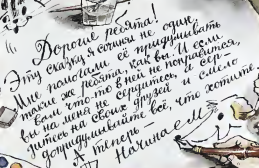 Дорогие ребята!
Эту сказку я сочинял не один.
Мне помогали её придумывать
такие же ребята, как вы. И если
вам что-то в ней не понравится,
вы на меня не сердитесь, а сер-
дитесь на своих друзей и смело
допридумывайте всё, что хотите.
А теперь —
Начинаем!